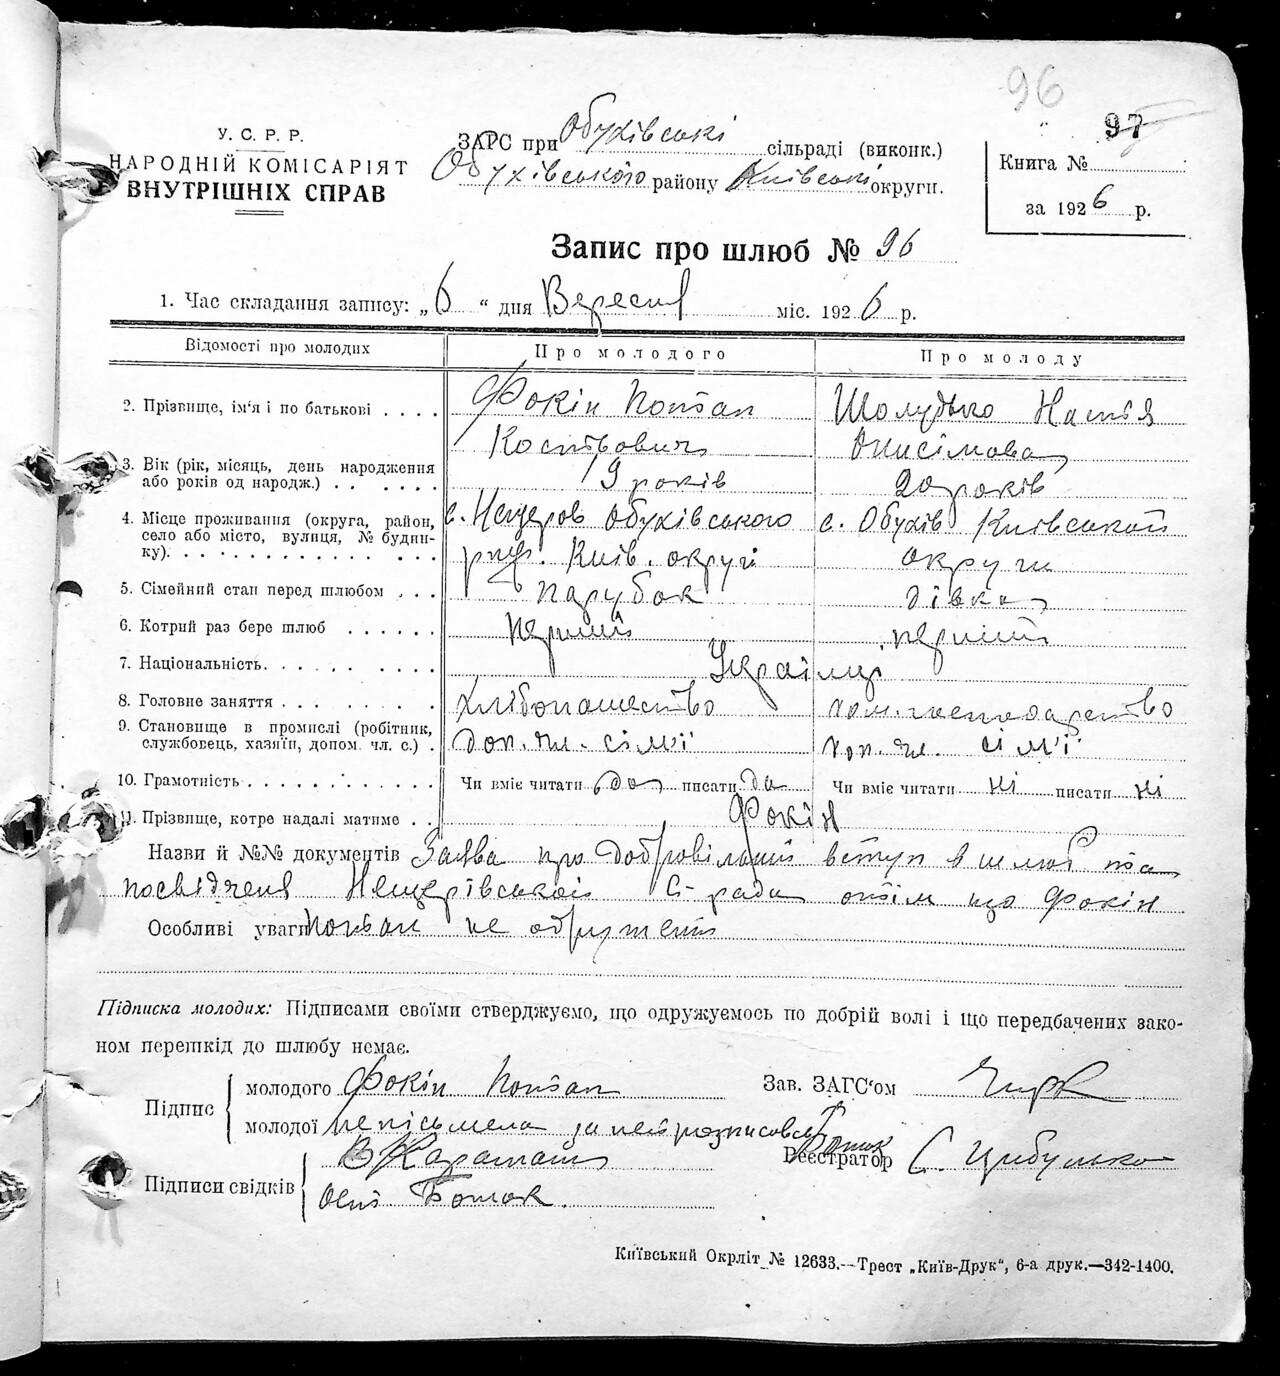 96
97
У. С. Р. Р.
НАРОДНІЙ КОМІСАРІЯТ
ВНУТРІШНІХ СПРАВ
ЗАГС при Обухівські сільраді (виконк.)
Обухівського району Київські округи.
Книга №
за 1926 р.
Запис про шлюб № 96
1. Час складання запису: „6“ дня Вересня міс. 1926 р.
Відомості про молодих
Про молодого
Про молоду
2. Прізвище, ім'я і по батькові . . . .
Фокін
Костьович
Шолудько Настя
Онисімова
3. Вік (рік, місяць, день народження
або років од народж.) . . . . . . .
19 років
20 років
4. Місце проживання (округа, район,
село або місто, вулиця, № будин-
ку). . . . . . . . . . . . . . .
с. Нещеров Обухівського
рай. Київ. округи
с. Обухів Київської
округи
5. Сімейний стан перед шлюбом . . .
парубок
дівка
6. Котрий раз бере шлюб . . . . . .
перший
перший
7. Національність. . . . . . . . . .
Українці
8. Головне заняття . . . . . . . . .
хлібопашество
дом. господарство
9. Становище в промислі (робітник,
службовець, хазяїн, допом. чл. с.) .
доп. чл. сім'ї
доп. чл. сім'ї
10. Грамотність . . . . . . . . . . .
Чи вміє читати да писати да
Чи вміє читати ні писати ні
11. Прізвище, котре надалі матиме . .
Фокін
Назви й №№ документів Заява про добровільний вступ в шлюб та
посвідченя Нещерівської С-ради отім що Фокін
Особливі уваги не одружений
Підписка молодих: Підписами своїми стверджуємо, що одружуємось по добрій волі і що передбачених зако-
ном перешкід до шлюбу немає.
Підпис
молодого Фокін
молодої непісьмена за неї розписовся
Зав. ЗАГС'ом
Реєстратор С. Цибулько
Підписи свідків
Київський Окрліт № 12633.—Трест „Київ-Друк“, 6-а друк.—342-1400.